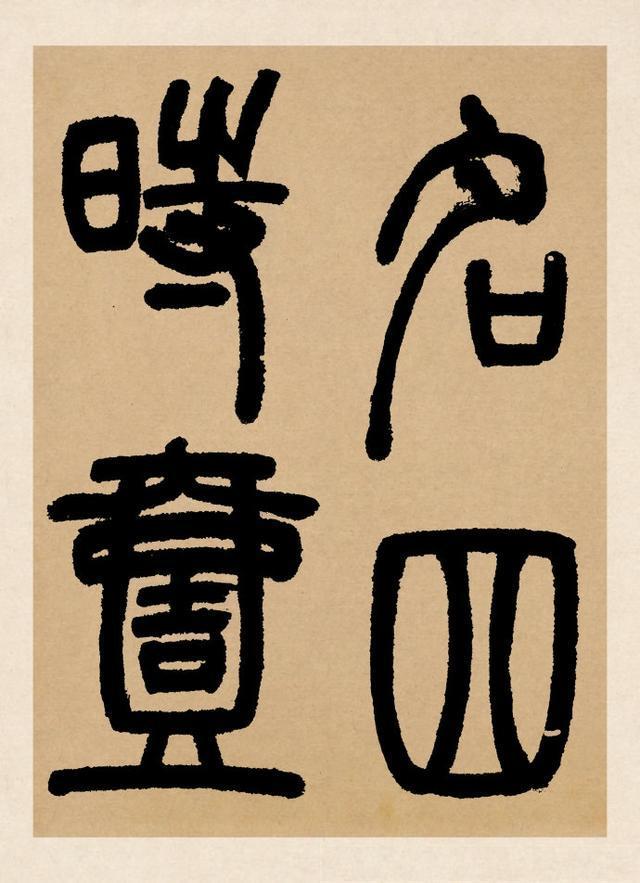 名四
時壹